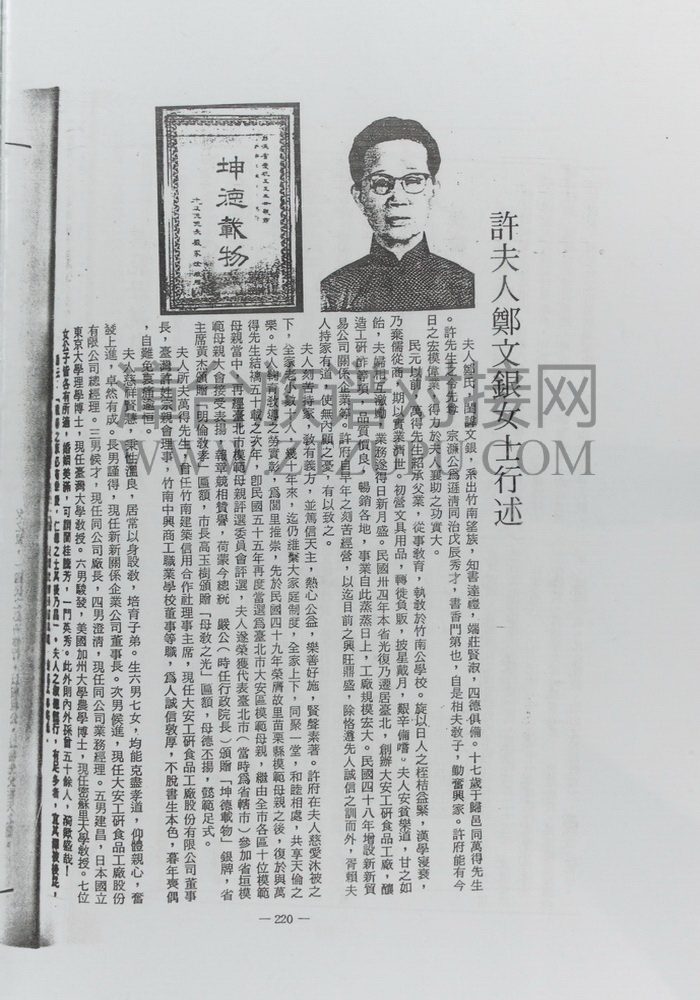 許夫人鄭文銀女士行述
坤德載物
夫人鄭氏，閨諱文銀，系出竹南望族，知書達禮，端莊賢淑，四德俱備。十七歲于歸邑同萬得先生
。許先生之令尊 宗濂公為遜清同治戊辰秀才，書香門第也，自是相夫教子，勤奮興家。許府能有今
日之宏模偉業，得力於夫人襄助之功實大。
民元以前，萬得先生紹承父業，從事教育，執教於竹南公學校。旋以日人之桎梏益緊，漢學寢衰，
乃棄儒從商，期以實業濟世。初營文具用品，轉徙負販，披星戴月，艱辛備嚐。夫人安貧樂道，甘之如
飴，夫婦相互激勵，業務遂得日新月盛。民國卅四年本省光復乃遷居臺北，創辦大安工研食品工廠，釀
造工研酢，品質優良，暢銷各地，事業自此蒸蒸日上，工廠規模宏大。民國四十八年增設新新貿
易公司關係企業等。許府自早年之刻苦經營，以迄目前之興旺鼎盛，除恪遵先人誠信之訓而外，胥賴夫
人持家有道，使無內顧之憂，有以致之。
夫人刻苦持家，教有義方，並篤信天主，熱心公益，樂善好施，賢聲素著。許府在夫人慈愛沐被之
下，全家老小數十人，幾十年來，迄仍維繫大家庭制度，全家上下，同聚一堂，和睦相處，共享天倫之
樂。夫人鞠育教導之勞實彰，為閭里推崇，先於民國四十九年榮膺故里苗栗縣模範母親之後，復於與萬
得先生結褵五十載之次年，卽民國五十五年再度當選為臺北市大安區模範母親，繼由全市各區十位模範
母親當中，再經臺北市模範母親評選委員會評選，夫人遂榮獲代表臺北市（當時為省轄市）參加省垣模
範母親大會接受表揚，報章競相贊譽，荷蒙今總統 嚴公（時任行政院長）頒贈「坤德載物」銀牌，省
主席黃杰頒贈「明倫教孝」匾額，市長高玉樹頒贈「母教之光」匾額，母德丕揚，懿範足式。
夫人所夫萬得先生，曾任竹南建築信用合作社理事主席，現任大安工研食品工廠股份有限公司董事
長，臺灣許姓宗親會理事，竹南中興商工職業學校董事等職，為人誠信敦厚，不脫書生本色，暮年喪偶
，自難免哀痛逾恒。
夫人慈祥賢慧，秉性溫良，居常以身設敎，培育子弟。生六男七女，均能克盡孝道，仰體親心，奮
發上進，卓然有成。長男謹得，現任新新關係企業公司董事長。次男候進，現任大安工研食品工廠股份
有限公司總經理。三男候才，現任同公司廠長，四男澄清，現任同公司業務經理。五男建昌，日本國立
東京大學理學博士，現任臺灣大學教授。六男駿發，美國加州大學農學博士，現任密蘇里大學教授。七位
女公子皆各有所適，婚姻美滿，可謂蘭桂騰芳，一門英秀。此外則內外孫曾五十餘人，猗歟盛哉！
—220—